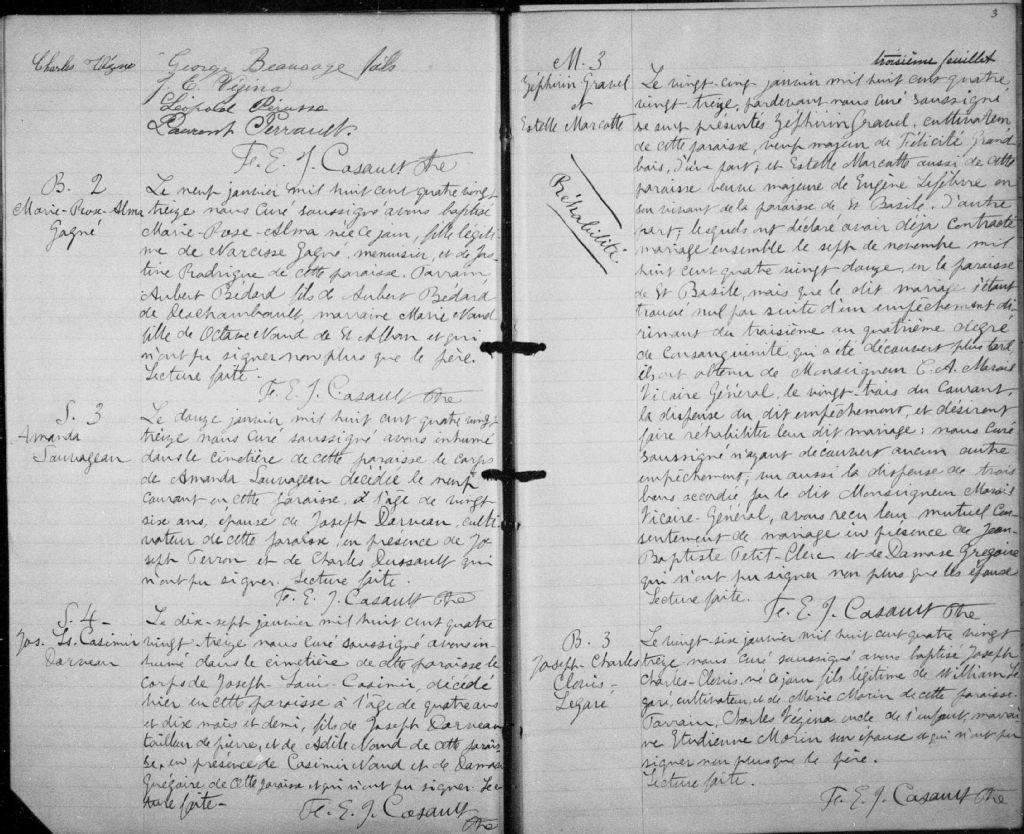 Charles Vézina
George Beausage fils
J. E. Vézina
Léopold Pérusse
Laurent Perrault.
Fr. E. J. Casault Ptre
B. 2
Marie-Rose-Alma
Gagné
Le neuf janvier mil huit cent quatre vingt
treize nous Curé soussigné avons baptisé
Marie-Rose-Alma née ce jour, fille légiti-
me de Narcisse Gagné, menuisier, et de Jus-
tine Rodrigue de cette paroisse. Parrain
Aubert Bédard fils de Aubert Bédard
de Deschambault, marraine Marie Naud
fille de Octave Naud de St Alban et qui
n'ont pu signer non plus que le père.
Lecture faite.
Fr. E. J. Casault Ptre
S. 3
Amanda
Sauvageau
Le douze janvier mil huit cent quatre vingt
treize nous Curé soussigné avons inhumé
dans le cimetière de cette paroisse le corps
de Amanda Sauvageau décédée le neuf
courant en cette paroisse, à l'âge de vingt
six ans, épouse de Joseph Darveau, culti-
vateur de cette paroisse, en présence de Jo-
seph Perron et de Charles Dussault qui
n'ont pu signer. Lecture faite.
Fr. E. J. Casault Ptre
S. 4
Jos. Ls. Casimir
Darveau
Le dix-sept janvier mil huit cent quatre
vingt treize nous Curé soussigné avons in-
humé dans le cimetière de cette paroisse le
corps de Joseph-Louis-Casimir, décédé
hier en cette paroisse à l'âge de quatre ans
et dix mois et demi, fils de Joseph Darveau
tailleur de pierre, et de Adile Naud de cette parois
se, en présence de Casimir Naud et de Damase
Grégoire de cette paroisse et qui n'ont pu signer. Lec
ture faite-
Fr. E. J. Casault
Ptre
3
troisième feuillet
M. 3
Zéphirin Gravel
et
Estelle Marcotte
Réhabilité.
Le vingt-cinq janvier mil huit cent quatre
vingt-treize, pardevant nous Curé soussigné
se sont présentés Zéphirin Gravel, cultivateur
de cette paroisse, veuf majeur de Félicité Grand
bois, d'une part, et Estelle Marcotte aussi de cette
paroisse veuve majeure de Eugène Lefebvre en
son vivant de la paroisse de St Basile, d'autre
part; lesquels ont déclaré avoir déjà contracté
mariage ensemble le sept de novembre mil
huit cent quatre vingt douze, en la paroisse
de St Basile, mais que le dit mariage s'étant
trouvé nul par suite d'un empêchement di-
rimant du troisième au quatrième degré
de Consanguinité qui a été découvert plus tard
ils ont obtenu de Monseigneur C. A. Marois
Vicaire Général, le vingt-trois du Courant,
la dispense du dit empêchement, et désirent
faire réhabiliter leur dit mariage: nous Curé
soussigné n'ayant découvert aucun autre
empêchement, vu aussi la dispense de trois
bans accordée par le dit Monseigneur Marois
Vicaire-Général, avons reçu leur mutuel Con-
sentement de mariage en présence de Jean-
Baptiste Petit-Clerc et de Damase Grégoire
qui n'ont pu signer non plus que les époux
Lecture faite.
Fr. E. J. Casault Ptre
B. 3
Joseph-Charles
Clovis-
Légaré
Le vingt-six janvier mil huit cent quatre vingt
treize nous Curé soussigné avons baptisé Joseph
Charles-Clovis, né ce jour fils légitime de William Lé
garé, cultivateur, et de Marie Morin de cette paroisse.
Parrain, Charles Vézina oncle de l'enfant, marrai
ne Etudienne Morin son épouse et qui n'ont pu
signer non plus que le père.
Lecture faite.
Fr. E. J. Casault Ptre